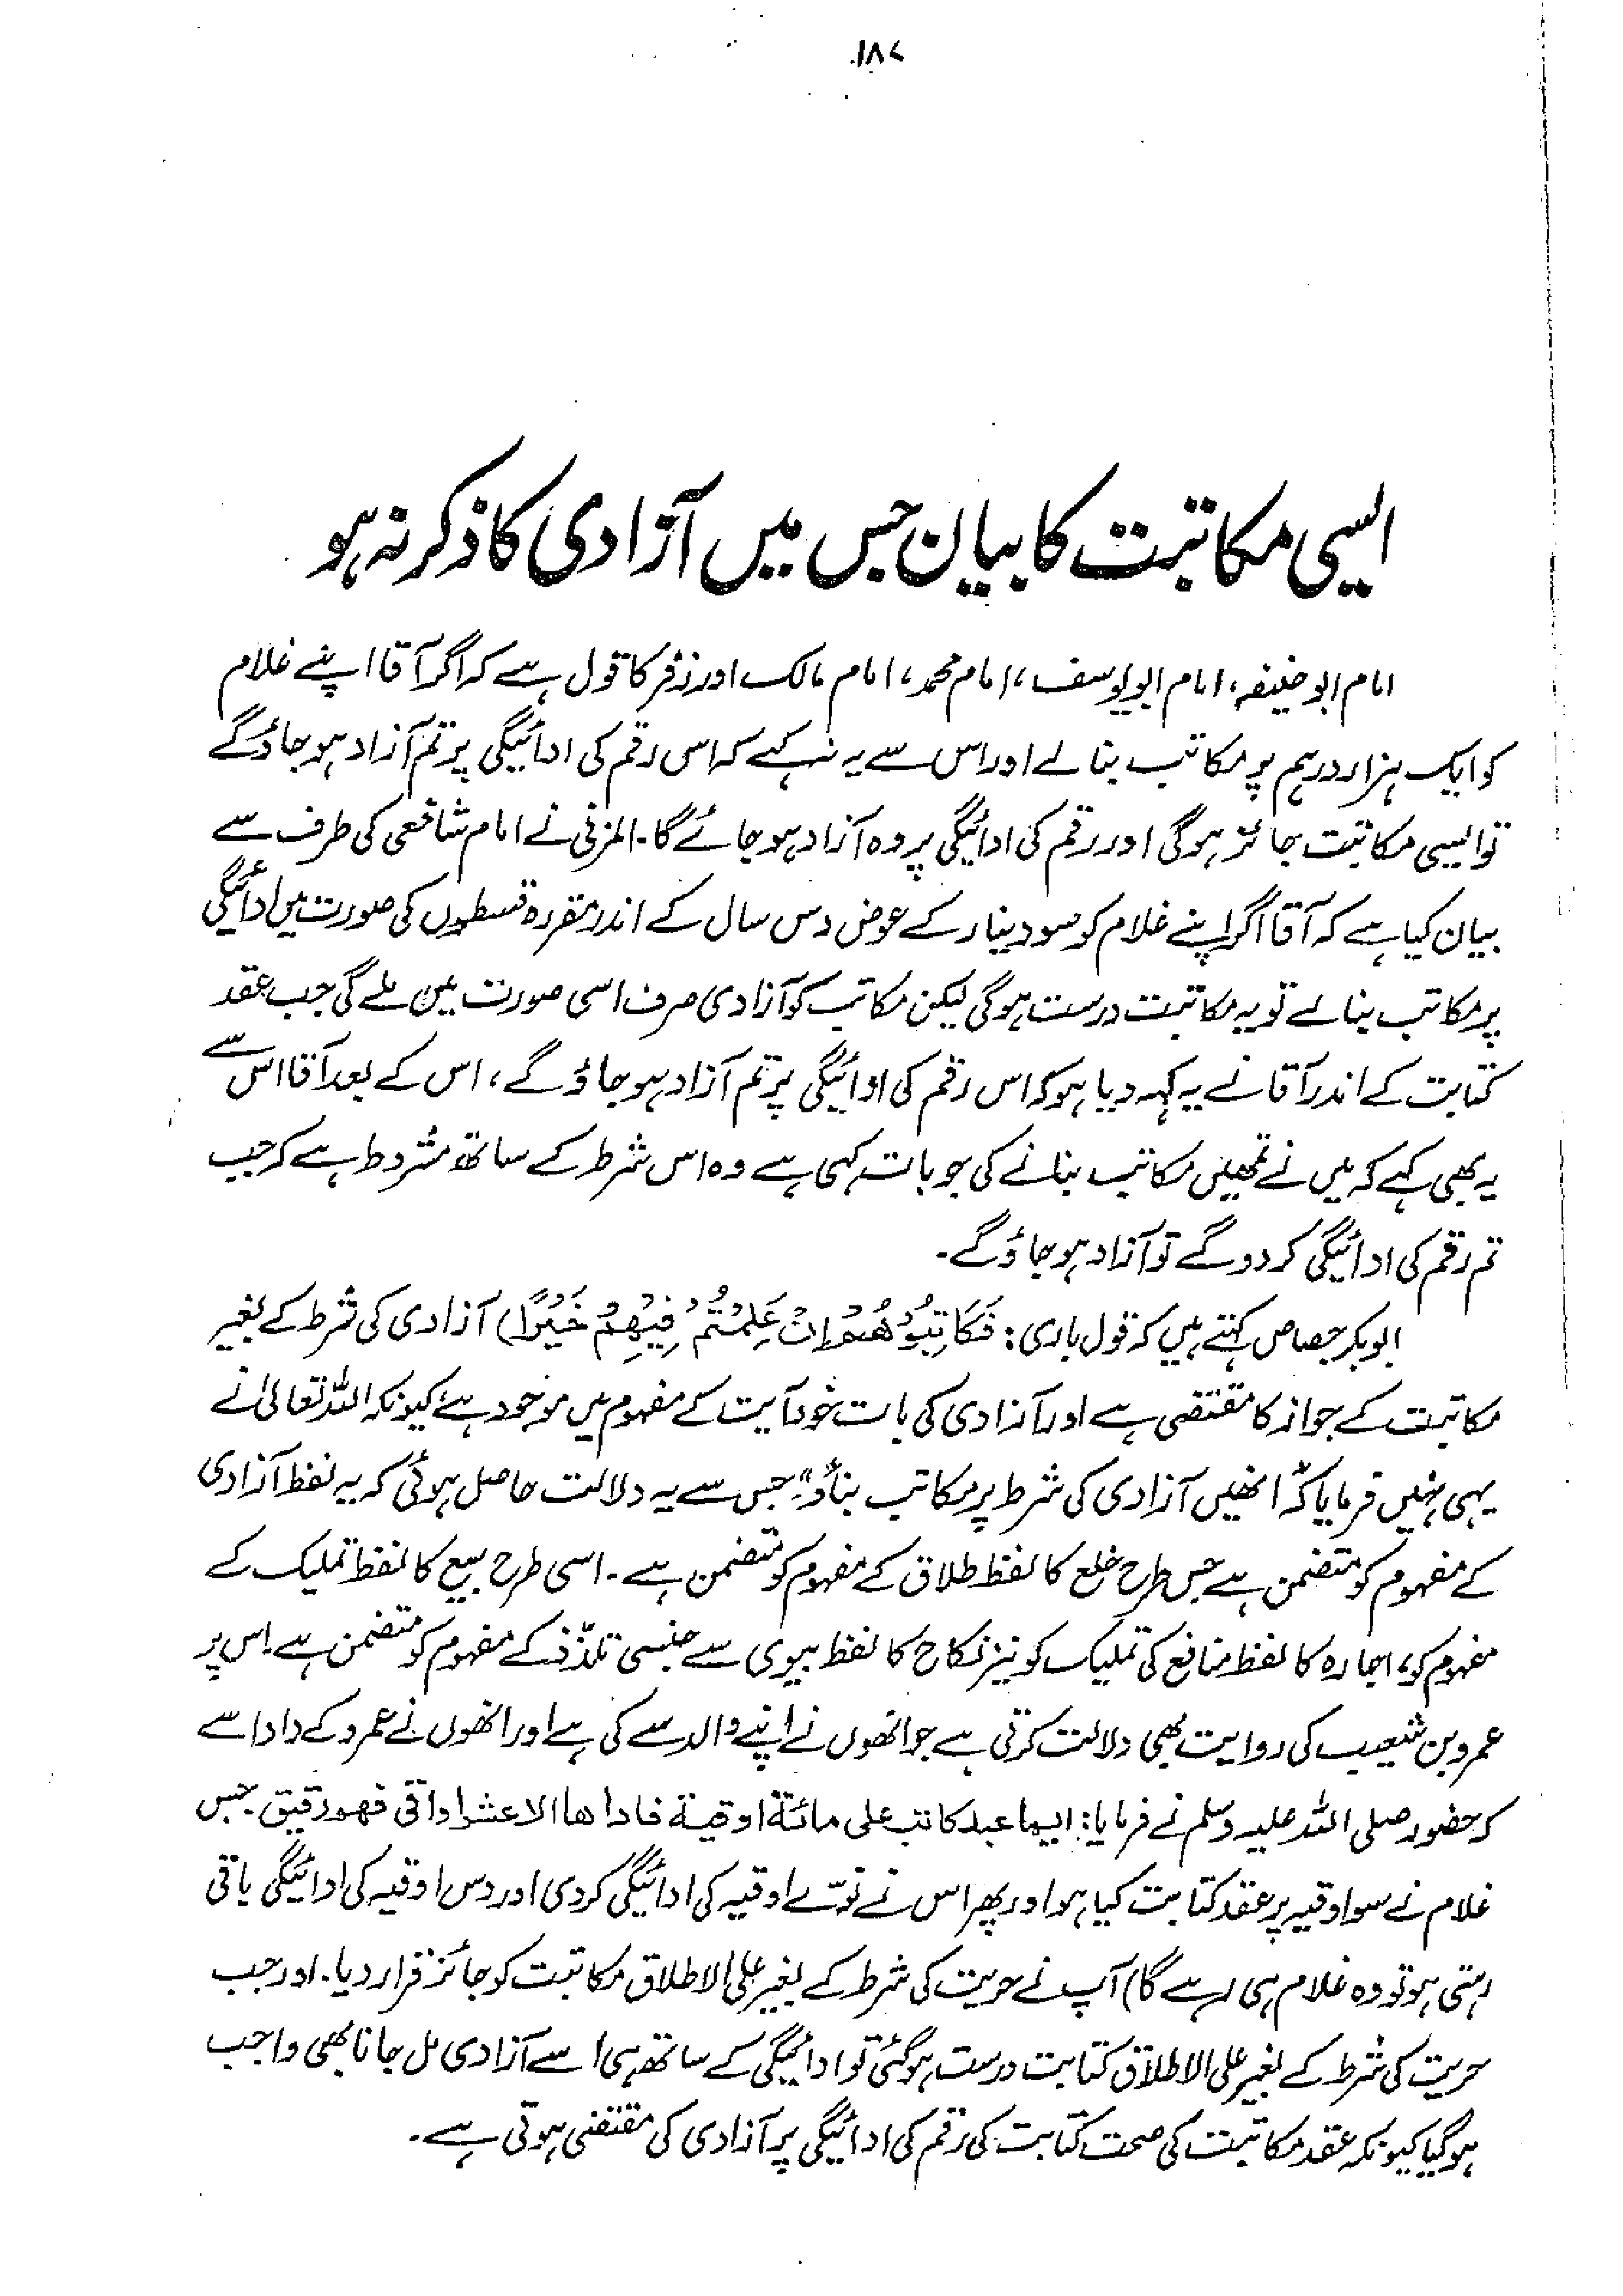 ۱۸۷
ایسی مکاتبت کا بیان جس میں آزادی کا ذکر نہ ہو
امام ابو حنیفہ، امام ابو یوسف، امام محمد، امام مالک اور زفر کا قول ہے کہ اگر آقا اپنے غلام
کو ایک ہزار درہم پر مکاتب بنا لے اور اس سے یہ نہ کہے کہ اس رقم کی ادائیگی پر تم آزاد ہو جاؤ گے
تو ایسی مکاتبت جائز ہو گی اور رقم کی ادائیگی پر وہ آزاد ہو جائے گا۔ المزنی نے امام شافعی کی طرف سے
بیان کیا ہے کہ آقا اگر اپنے غلام کو سو دینار کے عوض دس سال کے اندر مقررہ قسطوں کی صورت میں ادائیگی
پر مکاتب بنا لے تو یہ مکاتبت درست ہو گی لیکن مکاتب کو آزادی صرف اسی صورت میں ملے گی جب عقد
کتابت کے اندر آقا نے یہ کہہ دیا ہو کہ اس رقم کی ادائیگی پر تم آزاد ہو جاؤ گے، اس کے بعد آقا اس سے
یہ بھی کہے کہ میں نے تمھیں مکاتب بنانے کی جو بات کہی ہے وہ اس شرط کے ساتھ مشروط ہے کہ جب
تم رقم کی ادائیگی کر دو گے تو آزاد ہو جاؤ گے۔
ابو بکر جصاص کہتے ہیں کہ قول باری: فَكَاتِبُوْهُمْ اِنْ عَلِمْتُمْ فِيْهِمْ خَيْرًا) آزادی کی شرط کے بغیر
مکاتبت کے جواز کا مقتضی ہے اور آزادی کی بات خود آیت کے مفہوم میں موجود ہے کیونکہ اللہ تعالیٰ نے
یہی نہیں فرمایا کہ "انھیں آزادی کی شرط پر مکاتب بناؤ" جس سے یہ دلالت حاصل ہوئی کہ یہ لفظ آزادی
کے مفہوم کو متضمن ہے جس طرح خلع کا لفظ طلاق کے مفہوم کو متضمن ہے۔ اسی طرح بیع کا لفظ تملیک کے
مفہوم کو، اجارہ کا لفظ منافع کی تملیک کو نیز نکاح کا لفظ بیوی سے جنسی تلذّذ کے مفہوم کو متضمن ہے۔ اس پر
عمرو بن شعیب کی روایت بھی دلالت کرتی ہے جو انھوں نے اپنے والد سے کی ہے اور انھوں نے عمرو کے دادا سے
کہ حضور صلی اللہ علیہ وسلم نے فرمایا: ایما عبد کاتب علی مائة اوقية فاداها الا عشر اواقی فهو رقیق۔ جس
غلام نے سو اوقیہ پر عقد کتابت کیا ہو اور پھر اس نے نوّے اوقیہ کی ادائیگی کر دی اور دس اوقیہ کی ادائیگی باقی
رہتی ہو تو وہ غلام ہی رہے گا) آپ نے حریت کی شرط کے بغیر علی الاطلاق مکاتبت کو جائز قرار دیا۔ اور جب
حریت کی شرط کے بغیر علی الاطلاق کتابت درست ہو گئی تو ادائیگی کے ساتھ ہی اسے آزادی مل جانا بھی واجب
ہو گیا کیونکہ عقد مکاتبت کی صحت کتابت کی رقم کی ادائیگی پر آزادی کی مقتضی ہوتی ہے۔